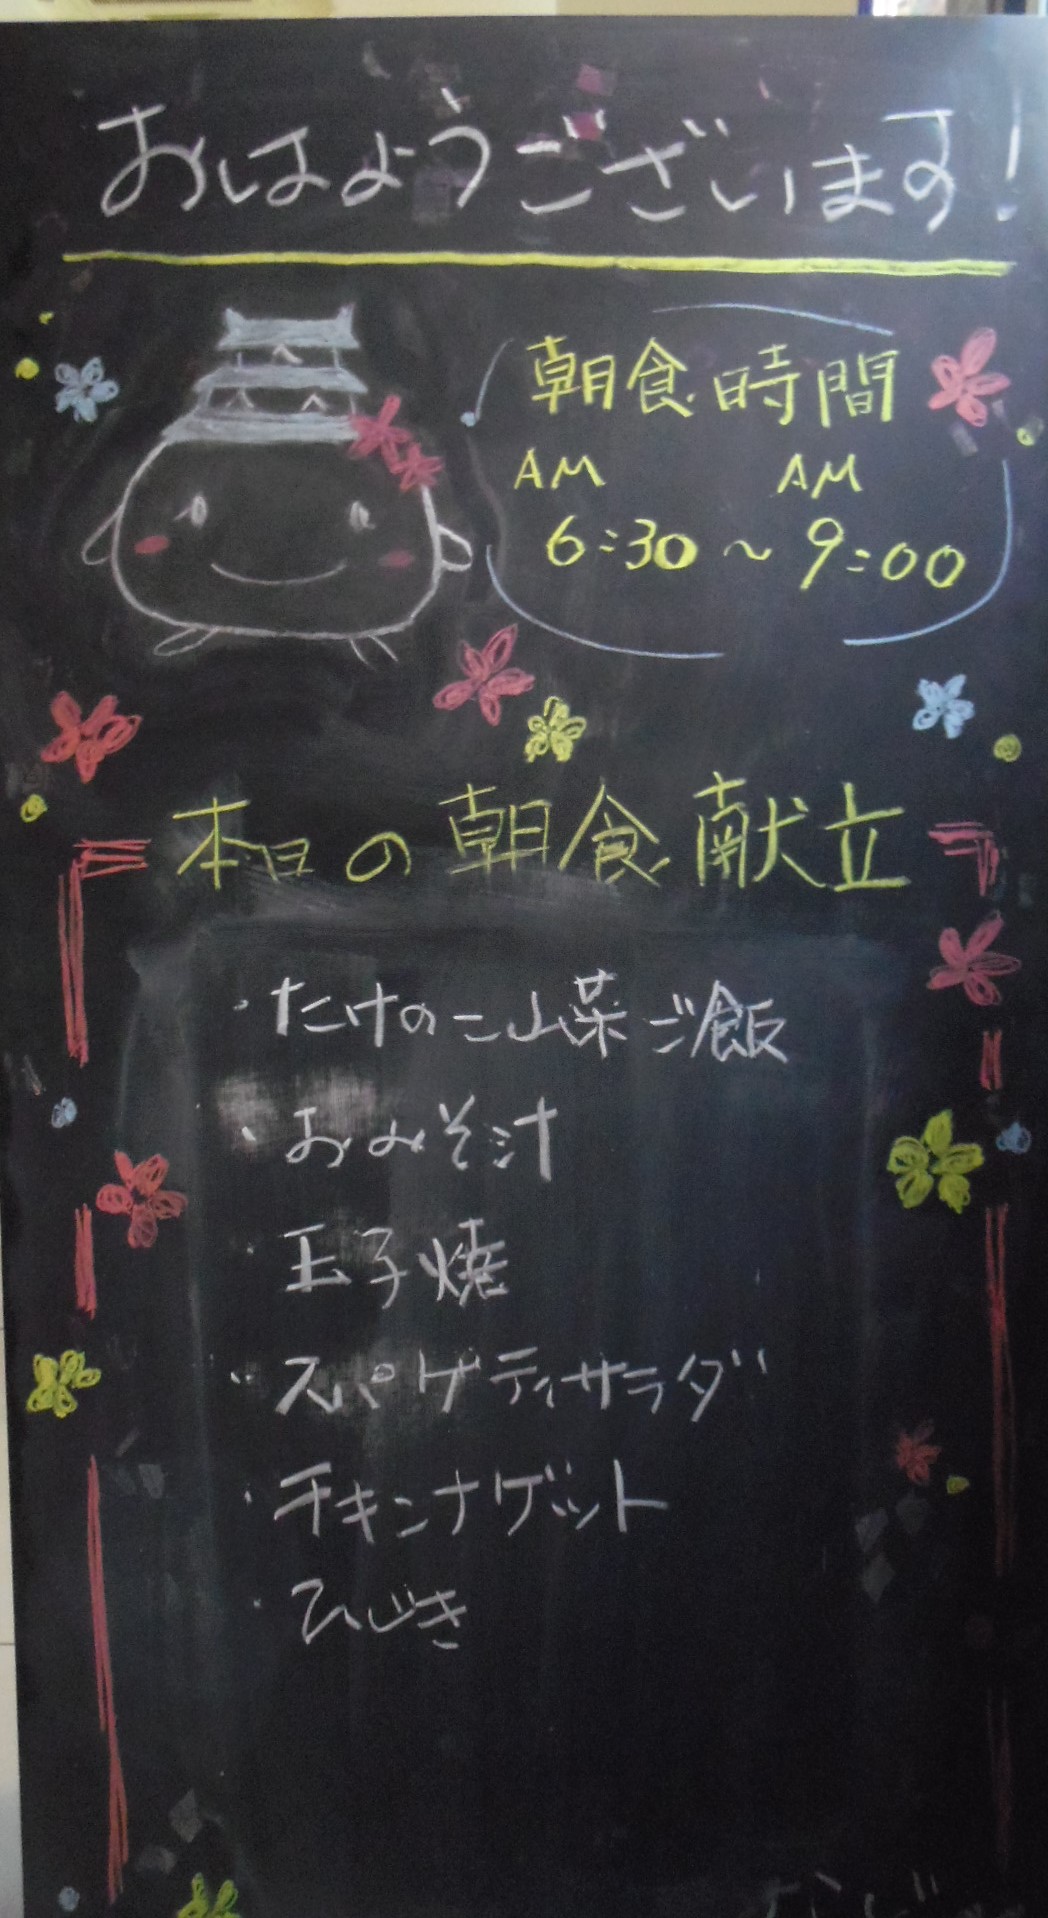 おはようございます!
朝食時間
AM AM
6:30~9:00
本日の朝食献立
・たけのこ山菜ご飯
・おみそ汁
・玉子焼
・スパゲティサラダ
・チキンナゲット
・ひじき